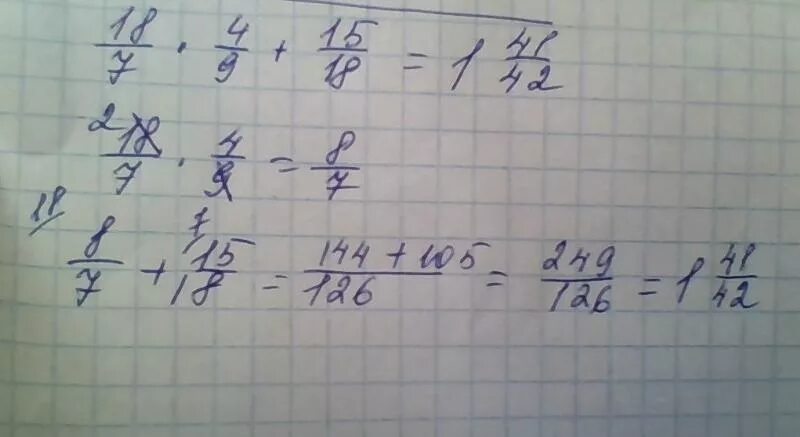 18/7 · 4/9 + 15/18 = 1 41/42
2 18/7 · 4/9 = 8/7
18/ 8/7 + 7/ 15/18 = 144 + 105/126 = 249/126 = 1 41/42